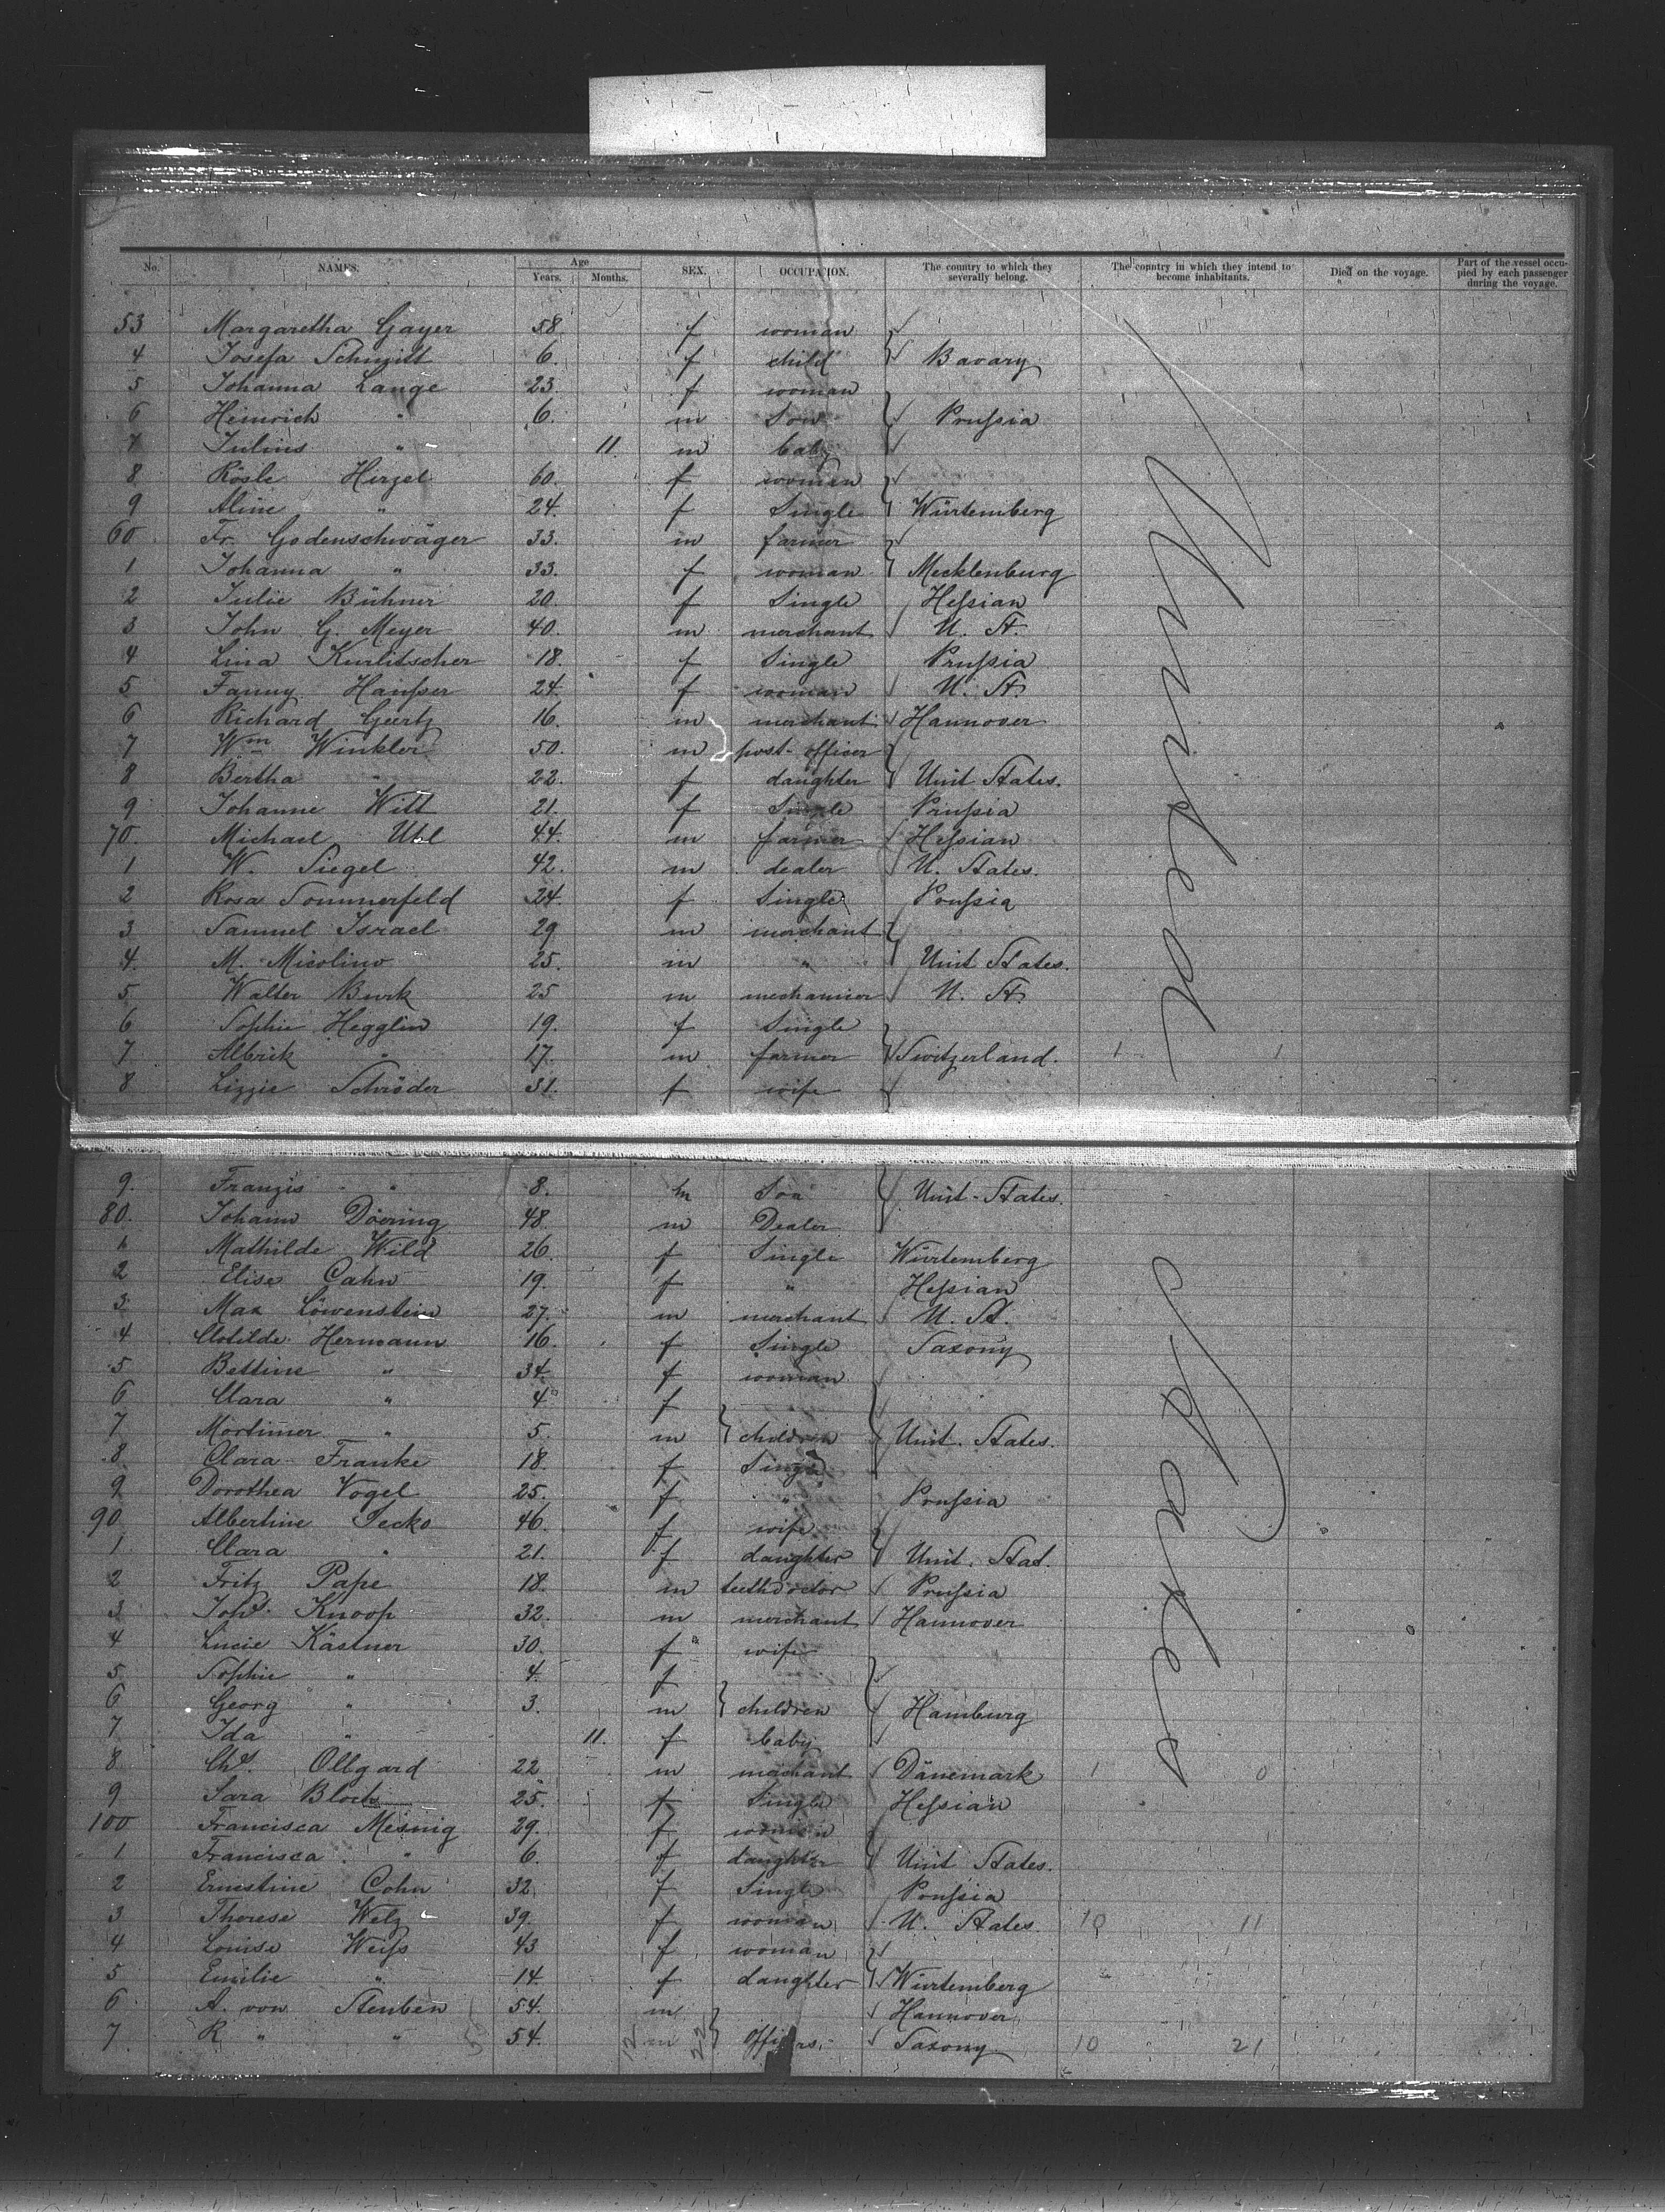 No. NAMES. Age Years. Months. SEX. OCCUPATION. The country to which they severally belong. The country in which they intend to become inhabitants. Died on the voyage. Part of the vessel occupied by each passenger during the voyage.
53 Margaretha Gayer 58 f woman
4 Josefa Schmitt 6. f child Bavary
5 Johanna Lange 23. f woman
6 Heinrich " 6. m Son Prussia
7 Julius " 11. m baby
8 Rösle Hirzel 60. f woman
9 Aline " 24. f Single Würtemberg
60 Fr. Godenschwäger 33. m farmer
1 Johanna " 33. f woman Mecklenburg
2 Julie Bühner 20. f Single Hessian
3 John G. Meyer 40. m merchant U. St.
4 Lina Kurlitscher 18. f Single Prussia
5 Fanny Hausser 24. f woman U. St.
6 Richard Geertz 16. m merchant Hannover
7 Wm Winkler 50. m post-officer
8 Bertha " 22. f daughter Unit States.
9 Johanne Witt 21. f Single Prussia
70. Michael Uhl 44. m farmer Hessian
1 W. Siegel 42. m dealer U. States.
2 Rosa Sommerfeld 24. f Single Prussia
3 Samuel Israel 29 m merchant
4. M. Micolino 25. m " Unit States.
5. Walter Burk 25 m mechanicer U. St.
6 Sophie Hegglin 19. f Single
7 Albrik " 17. m farmer Switzerland. 1 1
8 Lizzie Schröder 31. f wife
United States
9. Franzis " 8. m Son Unit-States.
80. Johann Döering 48. m Dealer
1 Mathilde Wild 26. f Single Würtemberg
2 Elise Cahn 19. f " Hessian
3 Max Löwenstein 27. m merchant U. St.
4 Clotilde Hermann 16. f Single Saxony
5 Bettine " 34. f woman
6 Clara " 4 f
7 Mortimer " 5. m children Unit. States.
8 Clara Franke 18. f Single
9 Dorothea Vogel 25. f " Prussia
90 Albertine Secko 46. f wife
1 Clara " 21. f daughter Unit. Stat.
2 Fritz Pape 18. m teethdoctor Prussia
3 Johs. Knoop 32. m merchant Hannover
4 Lucie Kästner 30. f wife
5. Sophie " 4. f
6 Georg " 3. m children Hamburg
7 Ida " 11. f baby
8 Chs. Ollgard 22 m merchant Dänemark 1 0
9 Sara Bloch 25. f Single Hessian
100 Francisca Mesnig 29. f woman
1 Francisca " 6. f daughter Unit States.
2 Ernestine Cohn 32. f Single Prussia
3 Therese Welz 39. f woman U. States 10 11
4 Louise Weiss 43 f woman
5 Emilie " 14. f daughter Würtemberg
6 A. von Steuben 54. m Hannover
7 R " " 54. 12 m 22 Officers. Saxony 10 21